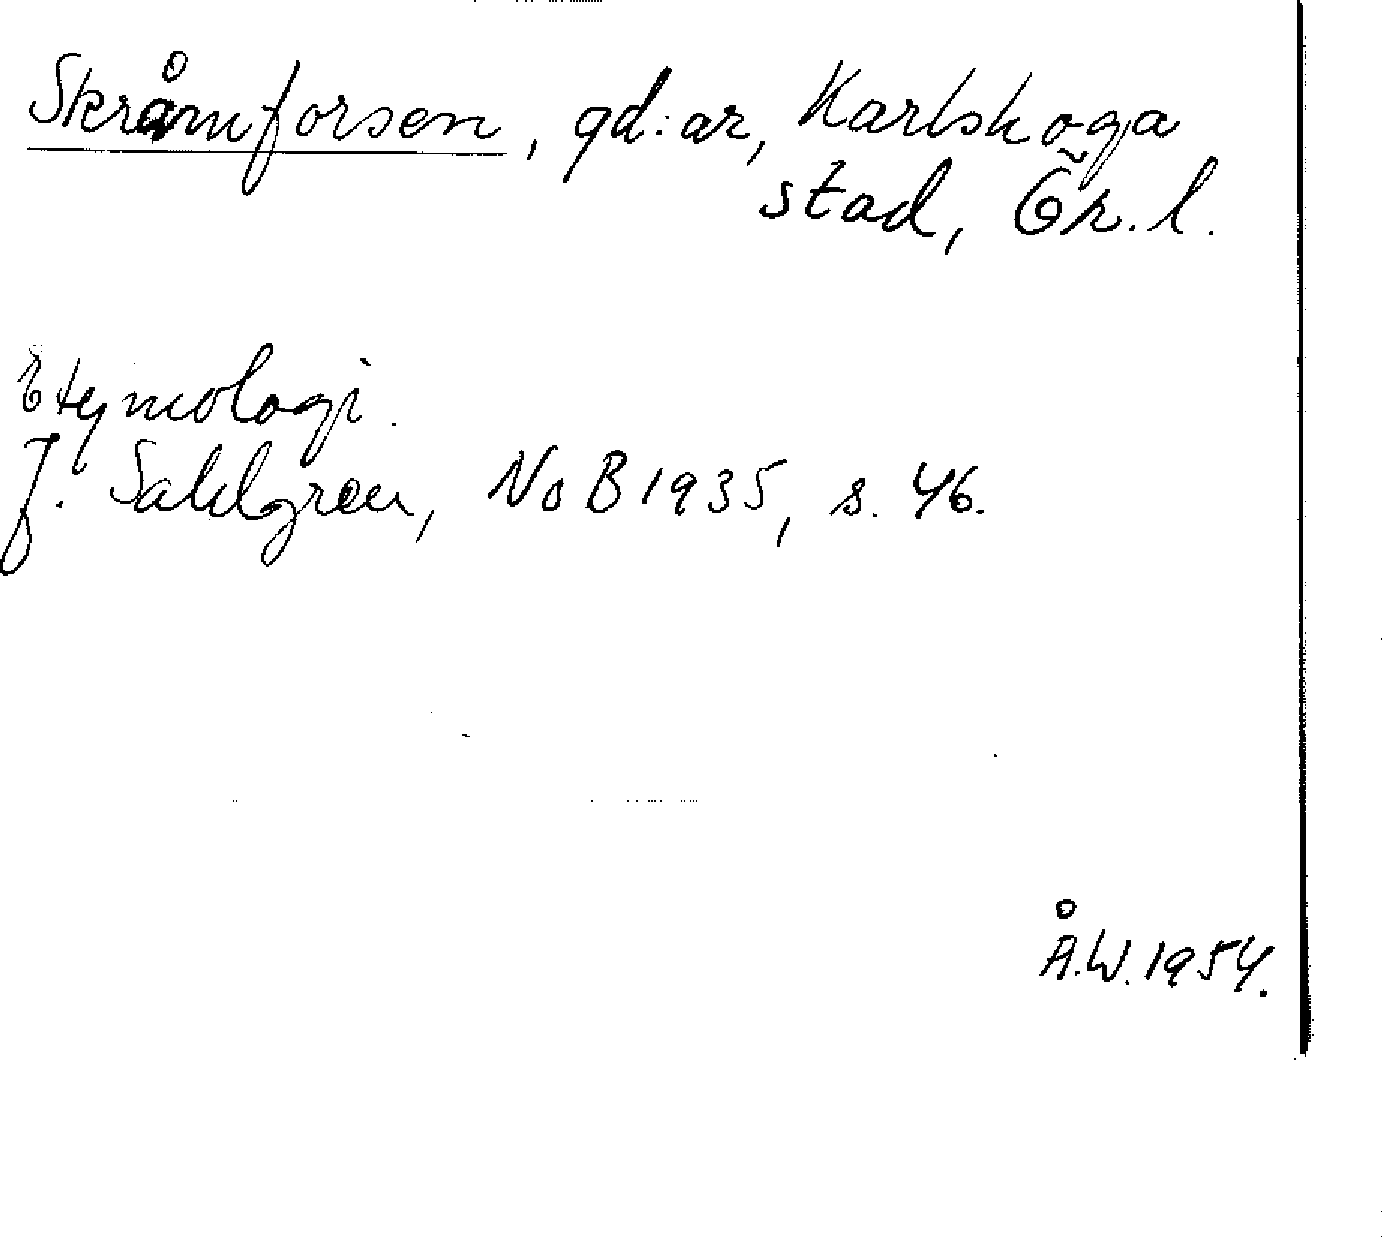 Skråmforsen, gd:ar, Karlskoga
stad, Ör. l.
Etymologi.
J. Sahlgren, NoB 1935, s. 46.
Å.W. 1954.